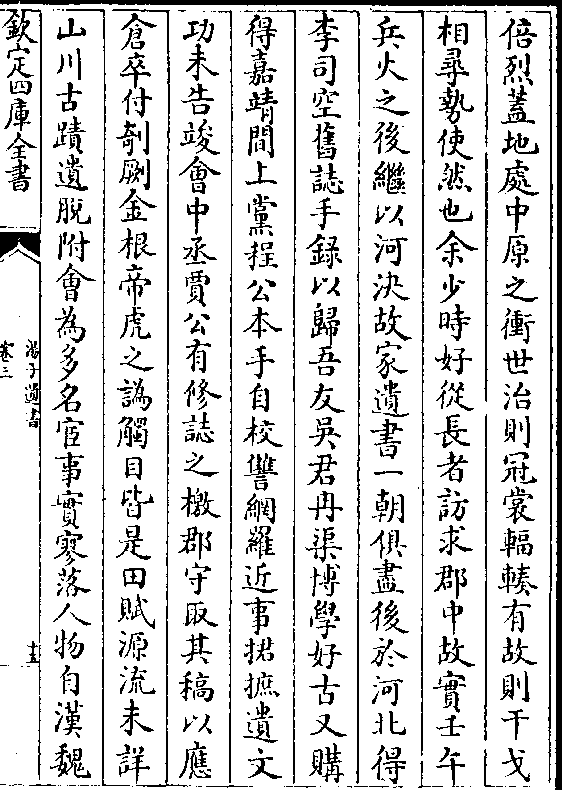 倍烈蓋地處中原之衝世治則冠裳輻輳有故則干戈
相尋勢使然也余少時好從長者訪求郡中故實壬午
兵火之後繼以河決故家遺書一朝俱盡後於河北得
李司空舊誌手錄以歸吾友吳君冉渠博學好古又購
得嘉靖間上黨程公本手自校讐網羅近事捃摭遺文
功未告竣會中丞賈公有修誌之檄郡守取其稿以應
倉卒付剞劂金根帝虎之譌觸目皆是田賦源流未詳
山川古蹟遺脫附會為多名宦事實寥落人物自漢魏
欽定四庫全書
湯子遺書
卷三
十五